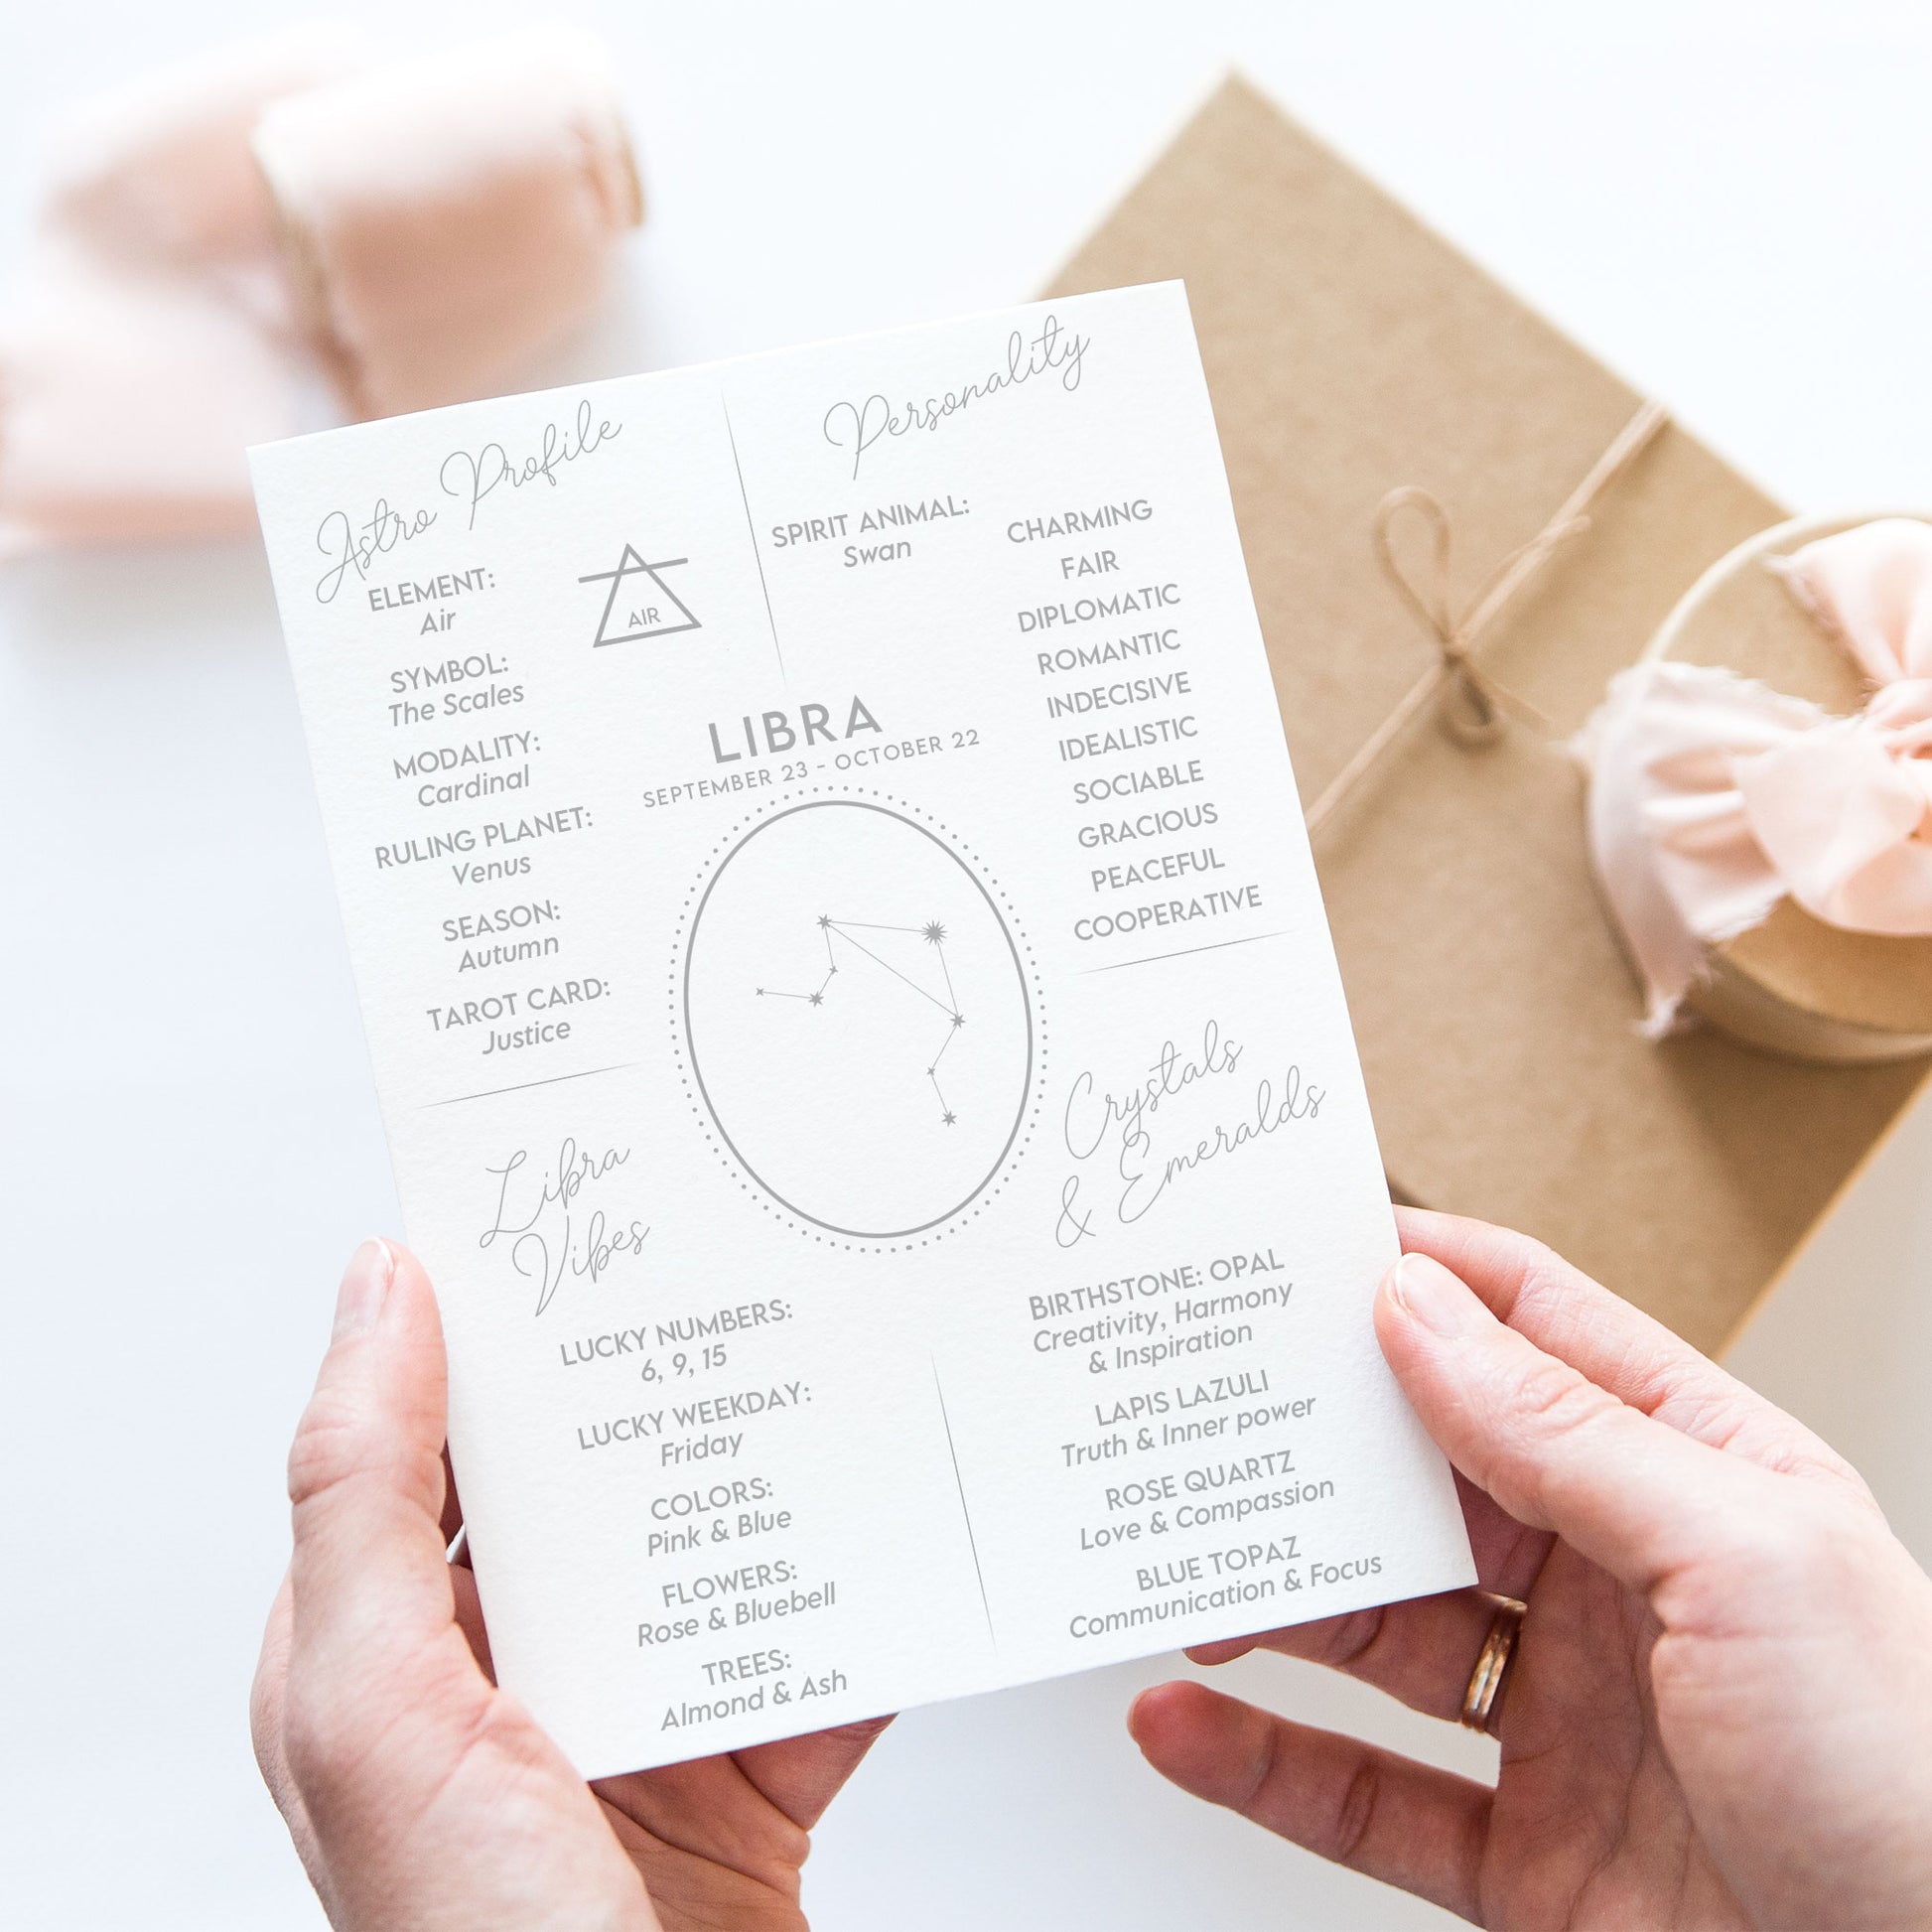 Astro Profile
ELEMENT:
Air
AIR
SYMBOL:
The Scales
MODALITY:
Cardinal
RULING PLANET:
Venus
SEASON:
Autumn
TAROT CARD:
Justice
Personality
SPIRIT ANIMAL:
Swan
CHARMING
FAIR
DIPLOMATIC
ROMANTIC
INDECISIVE
IDEALISTIC
SOCIABLE
GRACIOUS
PEACEFUL
COOPERATIVE
LIBRA
SEPTEMBER 23 - OCTOBER 22
Libra
Vibes
LUCKY NUMBERS:
6, 9, 15
LUCKY WEEKDAY:
Friday
COLORS:
Pink & Blue
FLOWERS:
Rose & Bluebell
TREES:
Almond & Ash
Crystals
& Emeralds
BIRTHSTONE: OPAL
Creativity, Harmony
& Inspiration
LAPIS LAZULI
Truth & Inner power
ROSE QUARTZ
Love & Compassion
BLUE TOPAZ
Communication & Focus